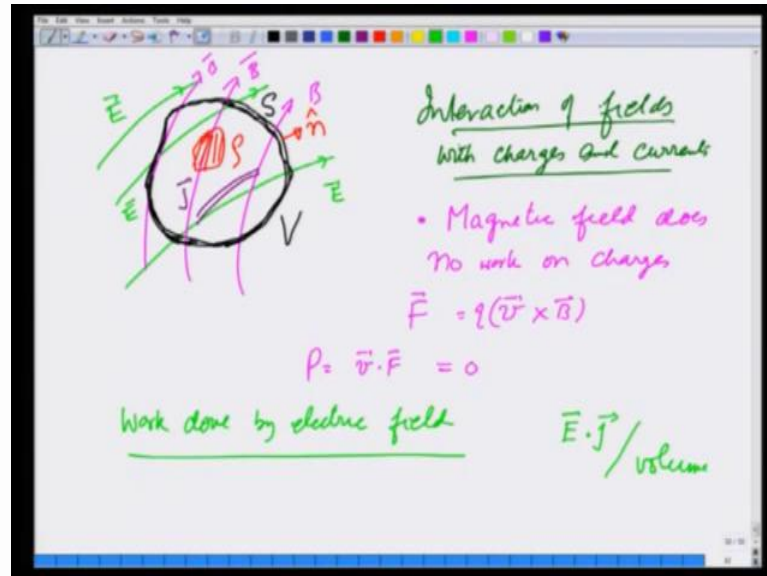 File Edit View Insert Actions Tools Help
Interaction of fields
with charges and currents
E⃗
B⃗
B⃗
B
S
n̂
ρ
E⃗
J⃗
E⃗
V
• Magnetic field does
no work on charges
F⃗ = q(v⃗ × B⃗)
P = v⃗ · F⃗ = 0
Work done by electric field
E⃗ · J⃗ / volume